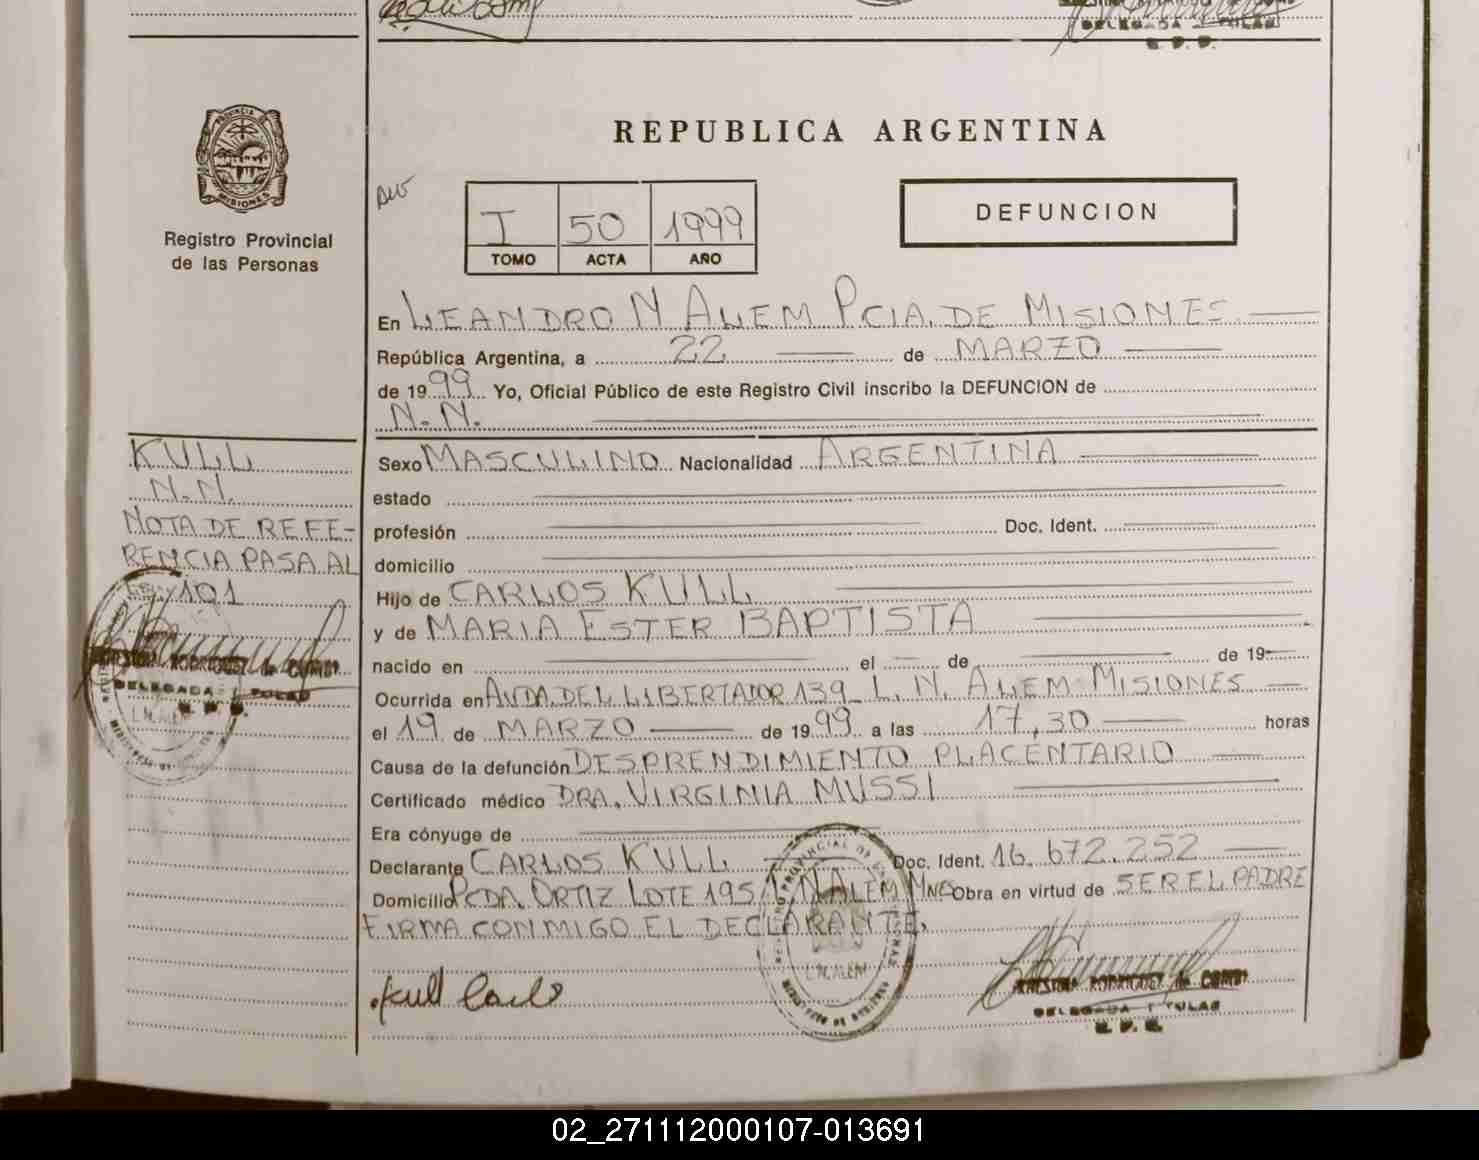 REPUBLICA ARGENTINA
PROVINCIA DE
MISIONES
Registro Provincial
de las Personas
I 50 1999
TOMO ACTA AÑO
DEFUNCION
En LEANDRO N ALEM PCIA. DE MISIONES
República Argentina, a 22 de MARZO
de 1999 Yo, Oficial Público de este Registro Civil inscribo la DEFUNCION de
N.N.
KULL
N.N.
NOTA DE REFE-
RENCIA PASA AL
101
Sexo MASCULINO Nacionalidad ARGENTINA
estado
profesión Doc. Ident.
domicilio
Hijo de CARLOS KULL
y de MARIA ESTER BAPTISTA
nacido en el de de 19
Ocurrida en AVDA. DEL LIBERTADOR 139 L. N. ALEM MISIONES
el 19 de MARZO de 1999 a las 17,30 horas
Causa de la defunción DESPRENDIMIENTO PLACENTARIO
Certificado médico DRA. VIRGINIA MUSSI
Era cónyuge de
Declarante CARLOS KULL Doc. Ident. 16.672.252
Domicilio PCDA. ORTIZ LOTE 195 L. N ALEM MNES Obra en virtud de SER EL PADRE
FIRMA CONMIGO EL DECLARANTE.
Kull Carlo
RODRIGUEZ de
DELEGADA TITULAR
R. P. P.
L. N. ALEM
02_271112000107-013691